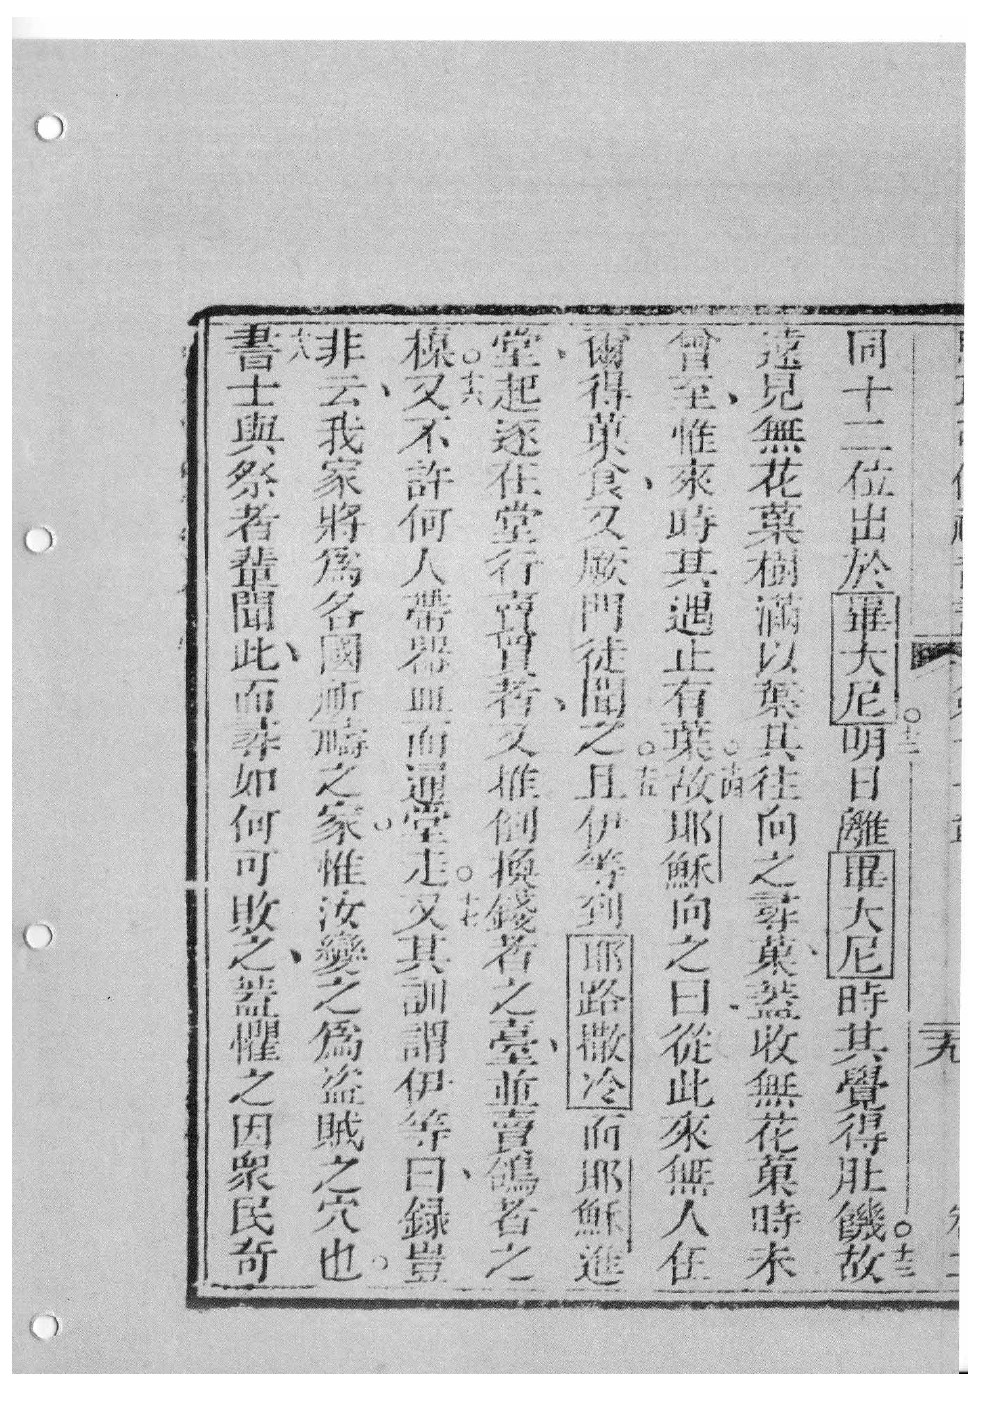 同十二位出於畢大尼。十二明日離畢大尼時其覺得肚饑。十三故
遠見無花菓樹滿以葉其往向之尋菓、蓋收無花菓時未
曾至、惟來時其遇止有葉。十四故耶穌向之曰、從此來無人在
爾得菓食、又厥門徒聞之。十五且伊等到耶路撒冷而耶穌進
堂、起逐在堂行賣買者、又推倒換錢者之臺、並賣鴿者之
櫈。十六又不許何人帶器皿而通堂走。十七又其訓謂伊等曰、錄豈
非云、我家將為各國所禱之家。惟汝變之為盜賊之穴也。
十八書士與祭者輩聞此、而尋如何可敗之、蓋懼之因眾民奇